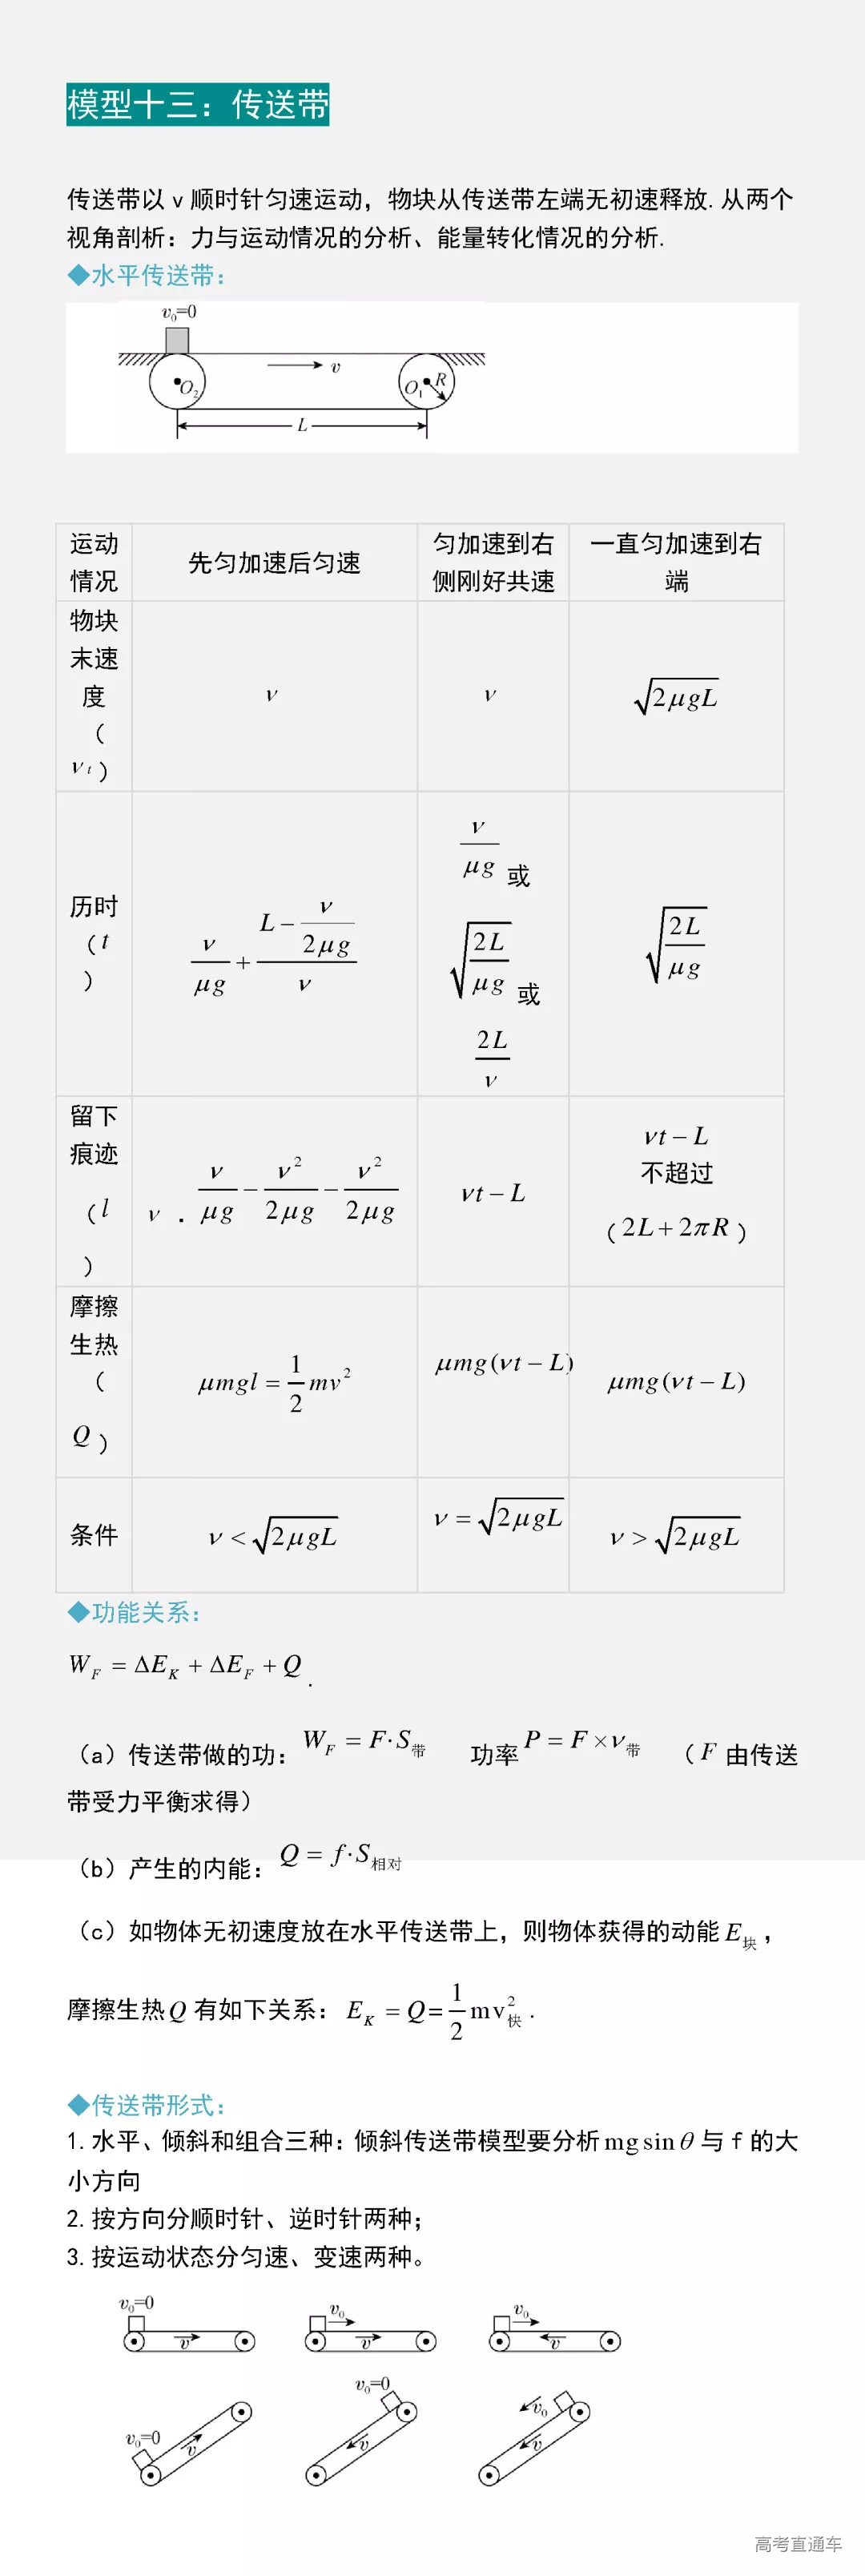 模型十三：传送带
传送带以 v 顺时针匀速运动，物块从传送带左端无初速释放.从两个
视角剖析：力与运动情况的分析、能量转化情况的分析.
◆水平传送带：
v₀=0
v
O₂
O₁
R
L
运动情况
先匀加速后匀速
匀加速到右侧刚好共速
一直匀加速到右端
物块末速度（v_t）
v
v
√(2μgL)
历时（t）
v/(μg) + (L − v/(2μg))/v
v/(μg) 或
√(2L/(μg)) 或
2L/v
√(2L/(μg))
留下痕迹（l）
v . v/(μg) − v²/(2μg) − v²/(2μg)
vt − L
vt − L
不超过
（2L+2πR）
摩擦生热（Q）
μmgl = 1/2 mv²
μmg(vt − L)
μmg(vt − L)
条件
v < √(2μgL)
v = √(2μgL)
v > √(2μgL)
◆功能关系：
W_F = ΔE_K + ΔE_F + Q .
（a）传送带做的功：W_F = F·S带 功率 P = F × v带 （F 由传送
带受力平衡求得）
（b）产生的内能：Q = f·S相对
（c）如物体无初速度放在水平传送带上，则物体获得的动能 E块，
摩擦生热 Q 有如下关系：E_K = Q = 1/2 mv²快 .
◆传送带形式：
1.水平、倾斜和组合三种：倾斜传送带模型要分析 mg sin θ 与 f 的大
小方向
2.按方向分顺时针、逆时针两种；
3.按运动状态分匀速、变速两种。
v₀=0
v
v₀
v
v₀
v
v₀=0
v
v₀=0
v
v₀
v
高考直通车